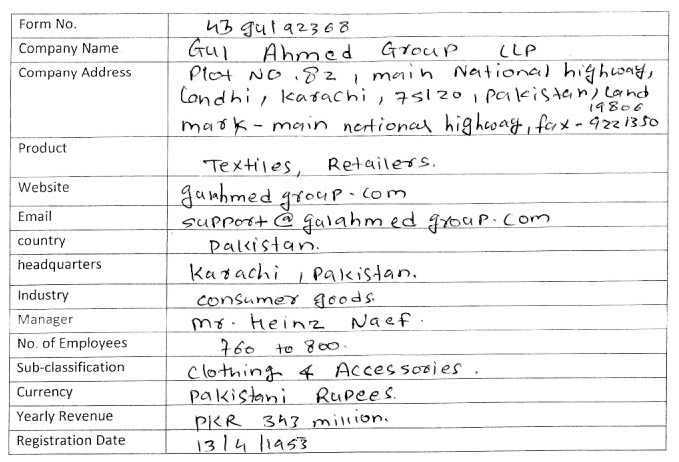 Form No. 43gul92368
Company Name Gul Ahmed Group LLP
Company Address Plot No.82, main National highway,
Londhi, Karachi, 75120, Pakistan, Land
19806
mark - main national highway, fax - 9221350
Product
Textiles, Retailers.
Website gulahmedgroup.com
Email support@gulahmedgroup.com
country Pakistan.
headquarters Karachi, Pakistan.
Industry consumer goods.
Manager mr. Heinz Naef.
No. of Employees 760 to 800.
Sub-classification Clothing & Accessories.
Currency Pakistani Rupees.
Yearly Revenue PKR 343 million.
Registration Date 13/4/1953